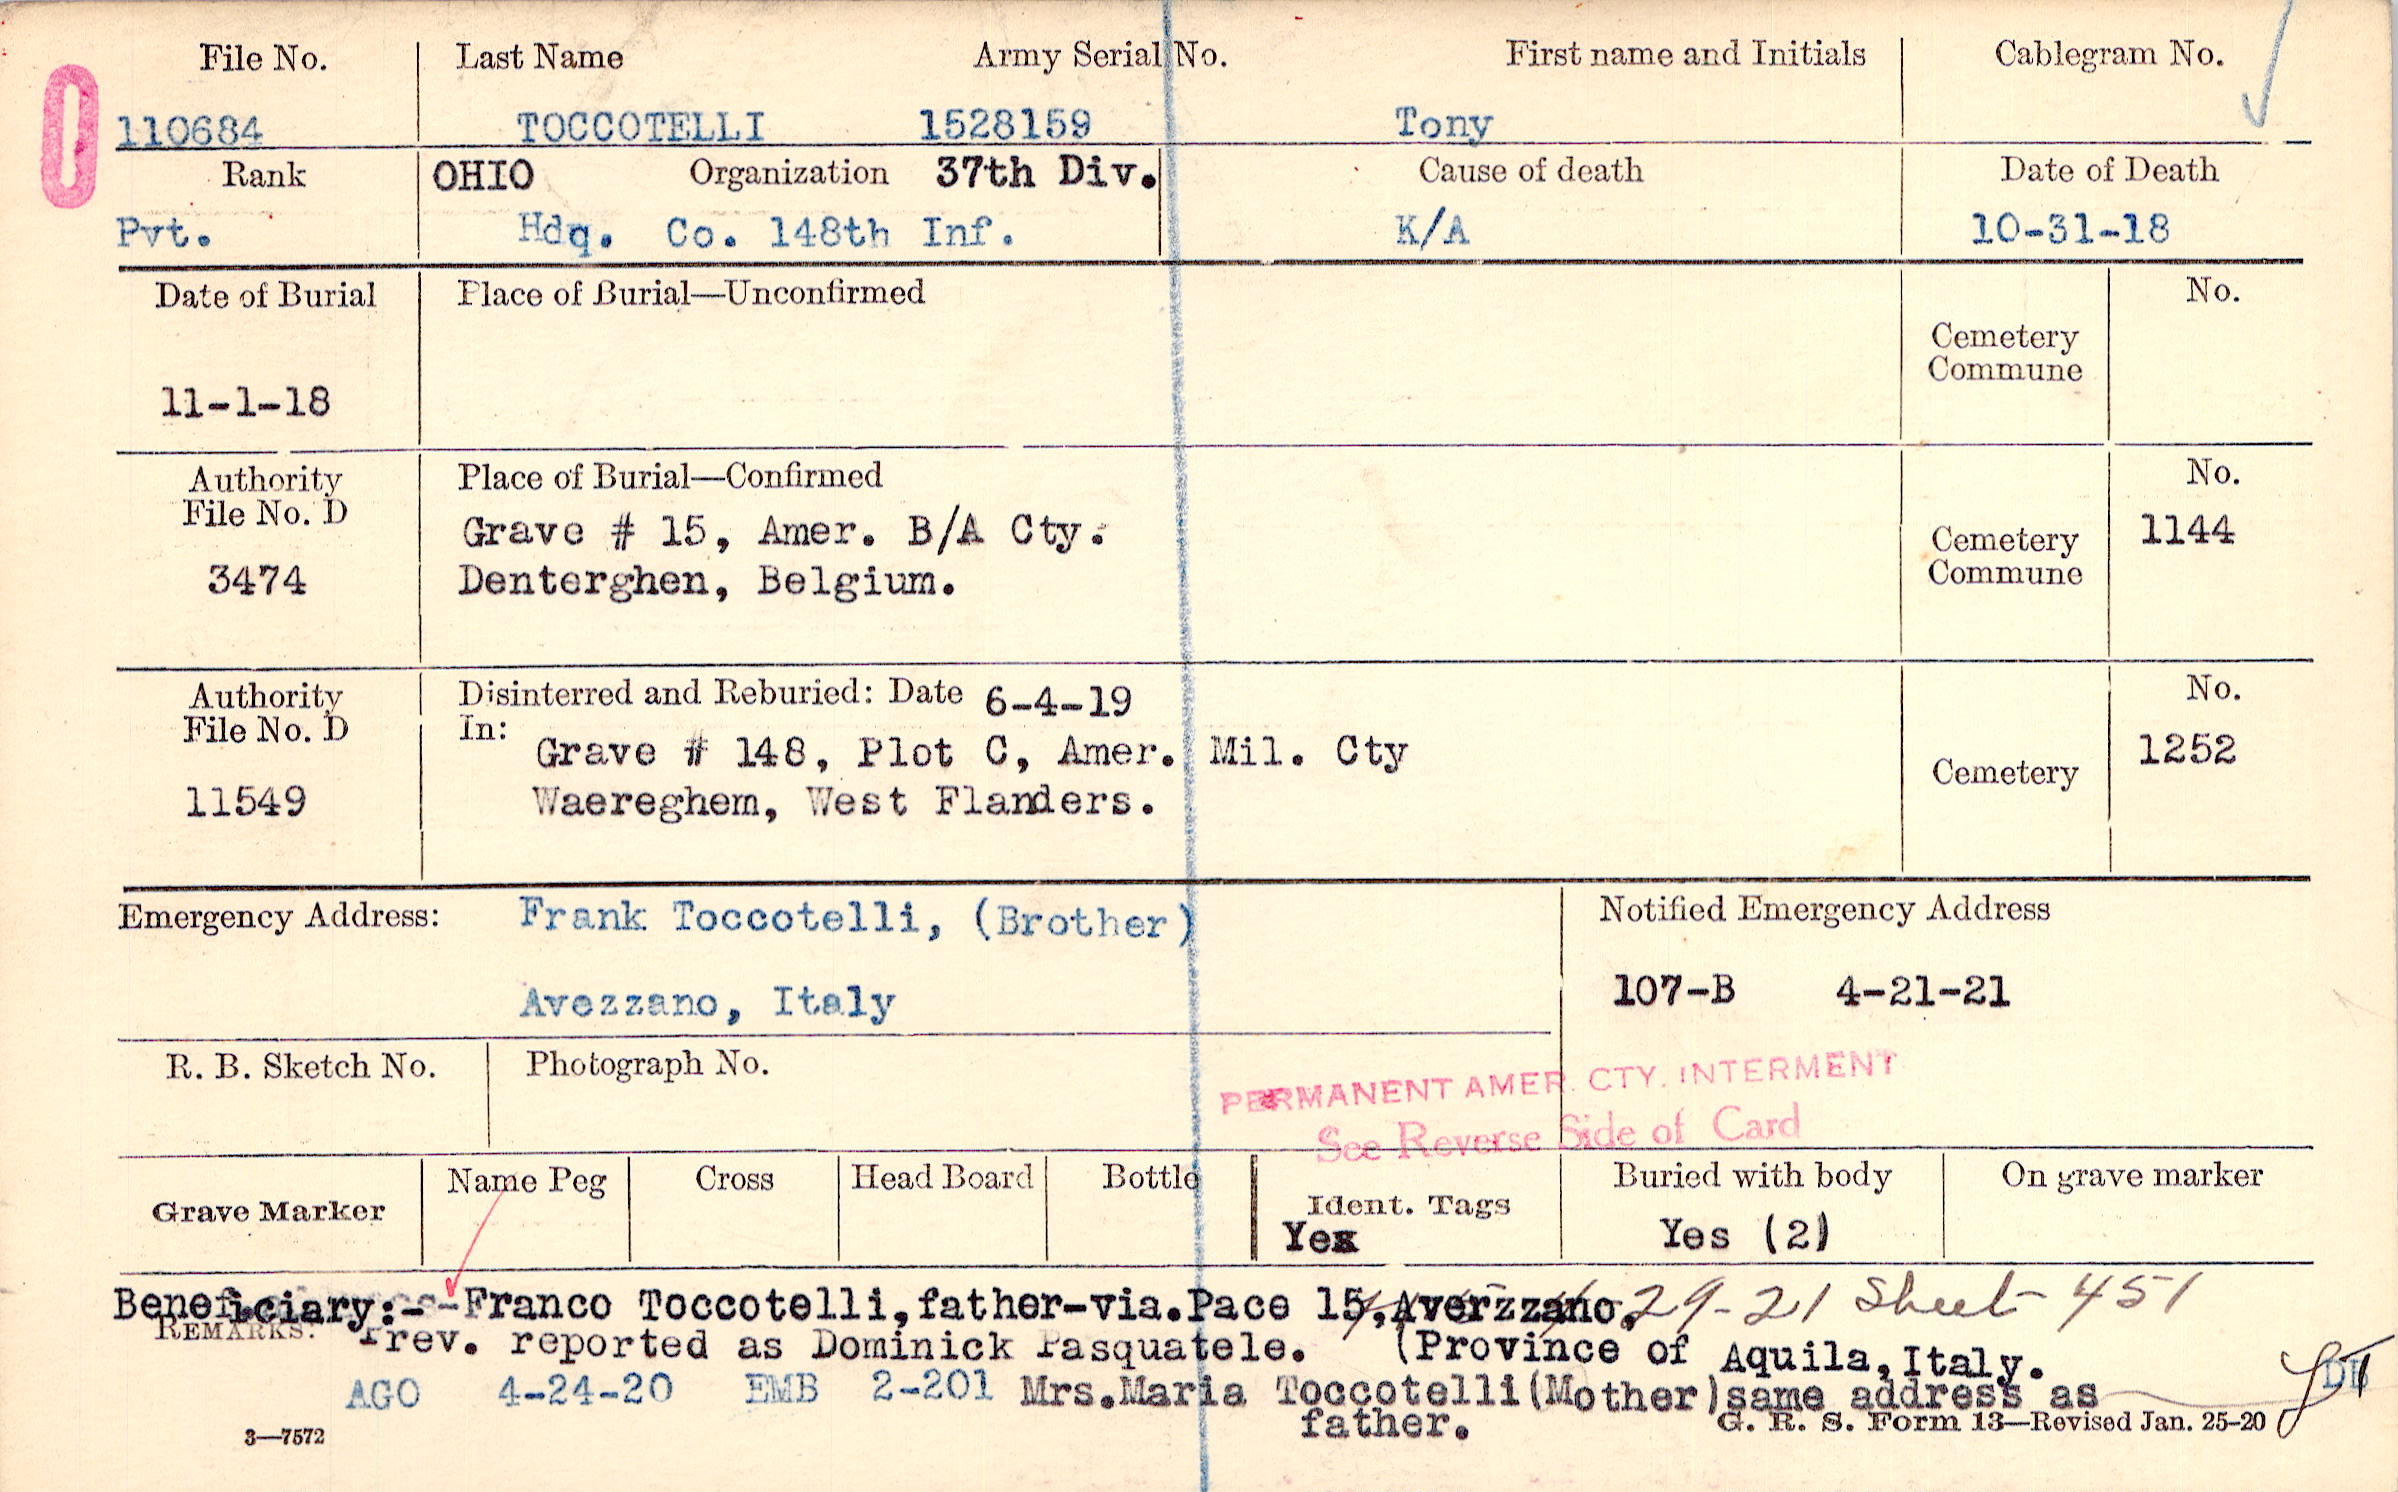 File No. Last Name Army Serial No. First name and Initials Cablegram No.
110684 TOCCOTELLI 1528159 Tony
Rank OHIO Organization 37th Div. Cause of death Date of Death
Pvt. Hdq. Co. 148th Inf. K/A 10-31-18
Date of Burial Place of Burial—Unconfirmed No.
Cemetery
Commune
11-1-18
Authority Place of Burial—Confirmed No.
File No. D
Grave # 15, Amer. B/A Cty. Cemetery 1144
3474 Denterghen, Belgium. Commune
Authority Disinterred and Reburied: Date 6-4-19 No.
File No. D In:
Grave # 148, Plot C, Amer. Mil. Cty Cemetery 1252
11549 Waereghem, West Flanders.
Emergency Address: Frank Toccotelli, (Brother) Notified Emergency Address
Avezzano, Italy 107-B 4-21-21
R. B. Sketch No. Photograph No.
PERMANENT AMER. CTY. INTERMENT
See Reverse Side of Card
Grave Marker Name Peg Cross Head Board Bottle Ident. Tags Buried with body On grave marker
Yes Yes (2)
Beneficiary:- Franco Toccotelli, father-via.Pace 15, Averzzano. 29-21 Sheet 451
REMARKS: Prev. reported as Dominick Pasquatele. (Province of Aquila, Italy.
AGO 4-24-20 EMB 2-201 Mrs.Maria Toccotelli(Mother)same address as
father.
3—7572 G. R. S. Form 13—Revised Jan. 25-20